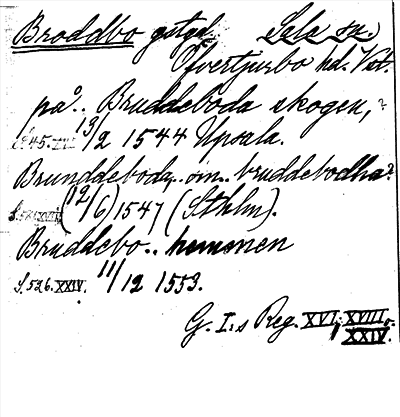 Broddbo gstgd. Sala sn.
Öfvertjurbo hd. Vstm.
på.. Bruddeboda skogen,
S. 45. XVI. 13/2 1544 Upsala.
Brunddeboda.. om.. bruddebodha
XVIII. (12/6) 1547 (Sthlm).
Bruddebo.. hemmen
S. 526. XXIV. 11/12 1553.
G. I:s Reg. XVI, XVIII,
XXIV.